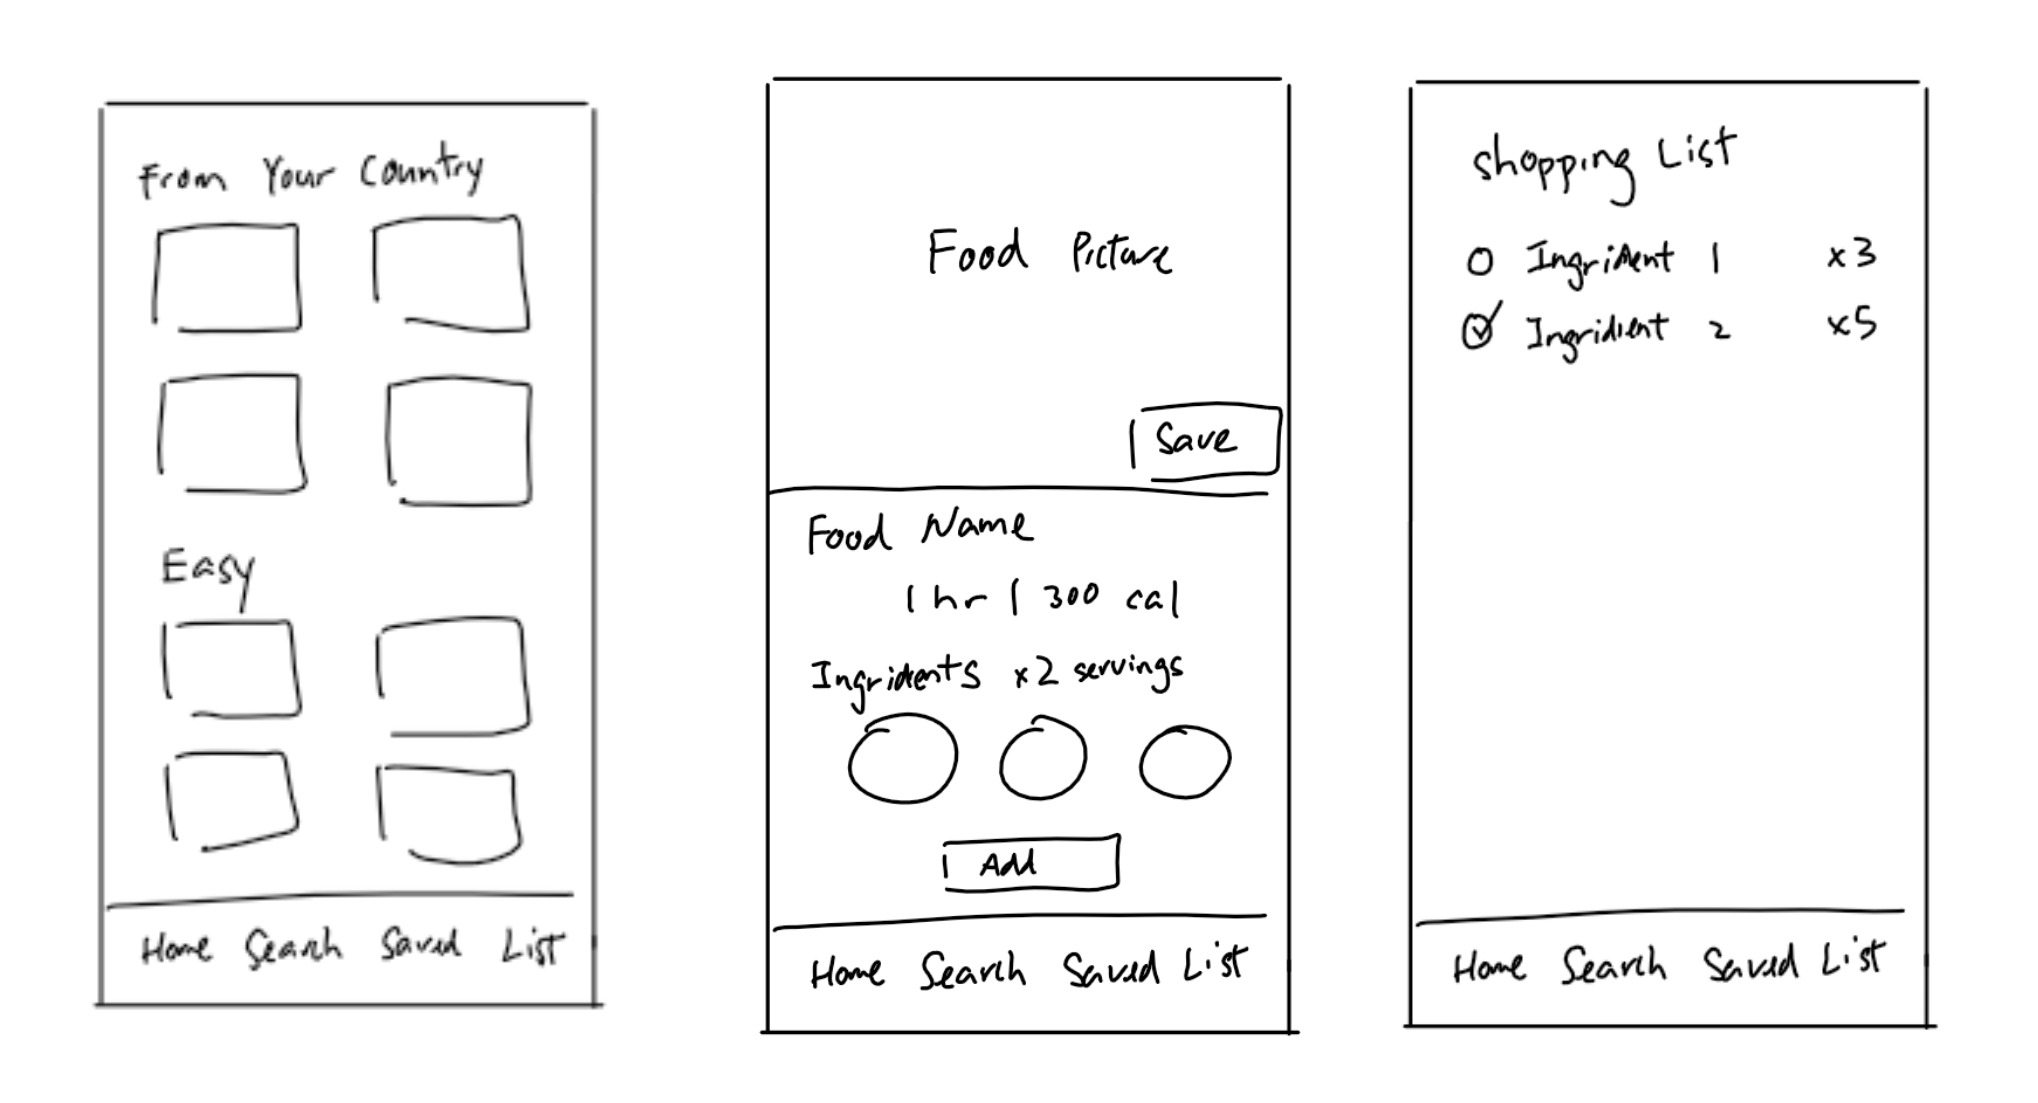 From Your Country
Easy
Home Search Saved List
Food Picture
Save
Food Name
1 hr | 300 cal
Ingridents x2 servings
Add
Home Search Saved List
Shopping List
Ingridient 1 x3
Ingridient 2 x5
Home Search Saved List